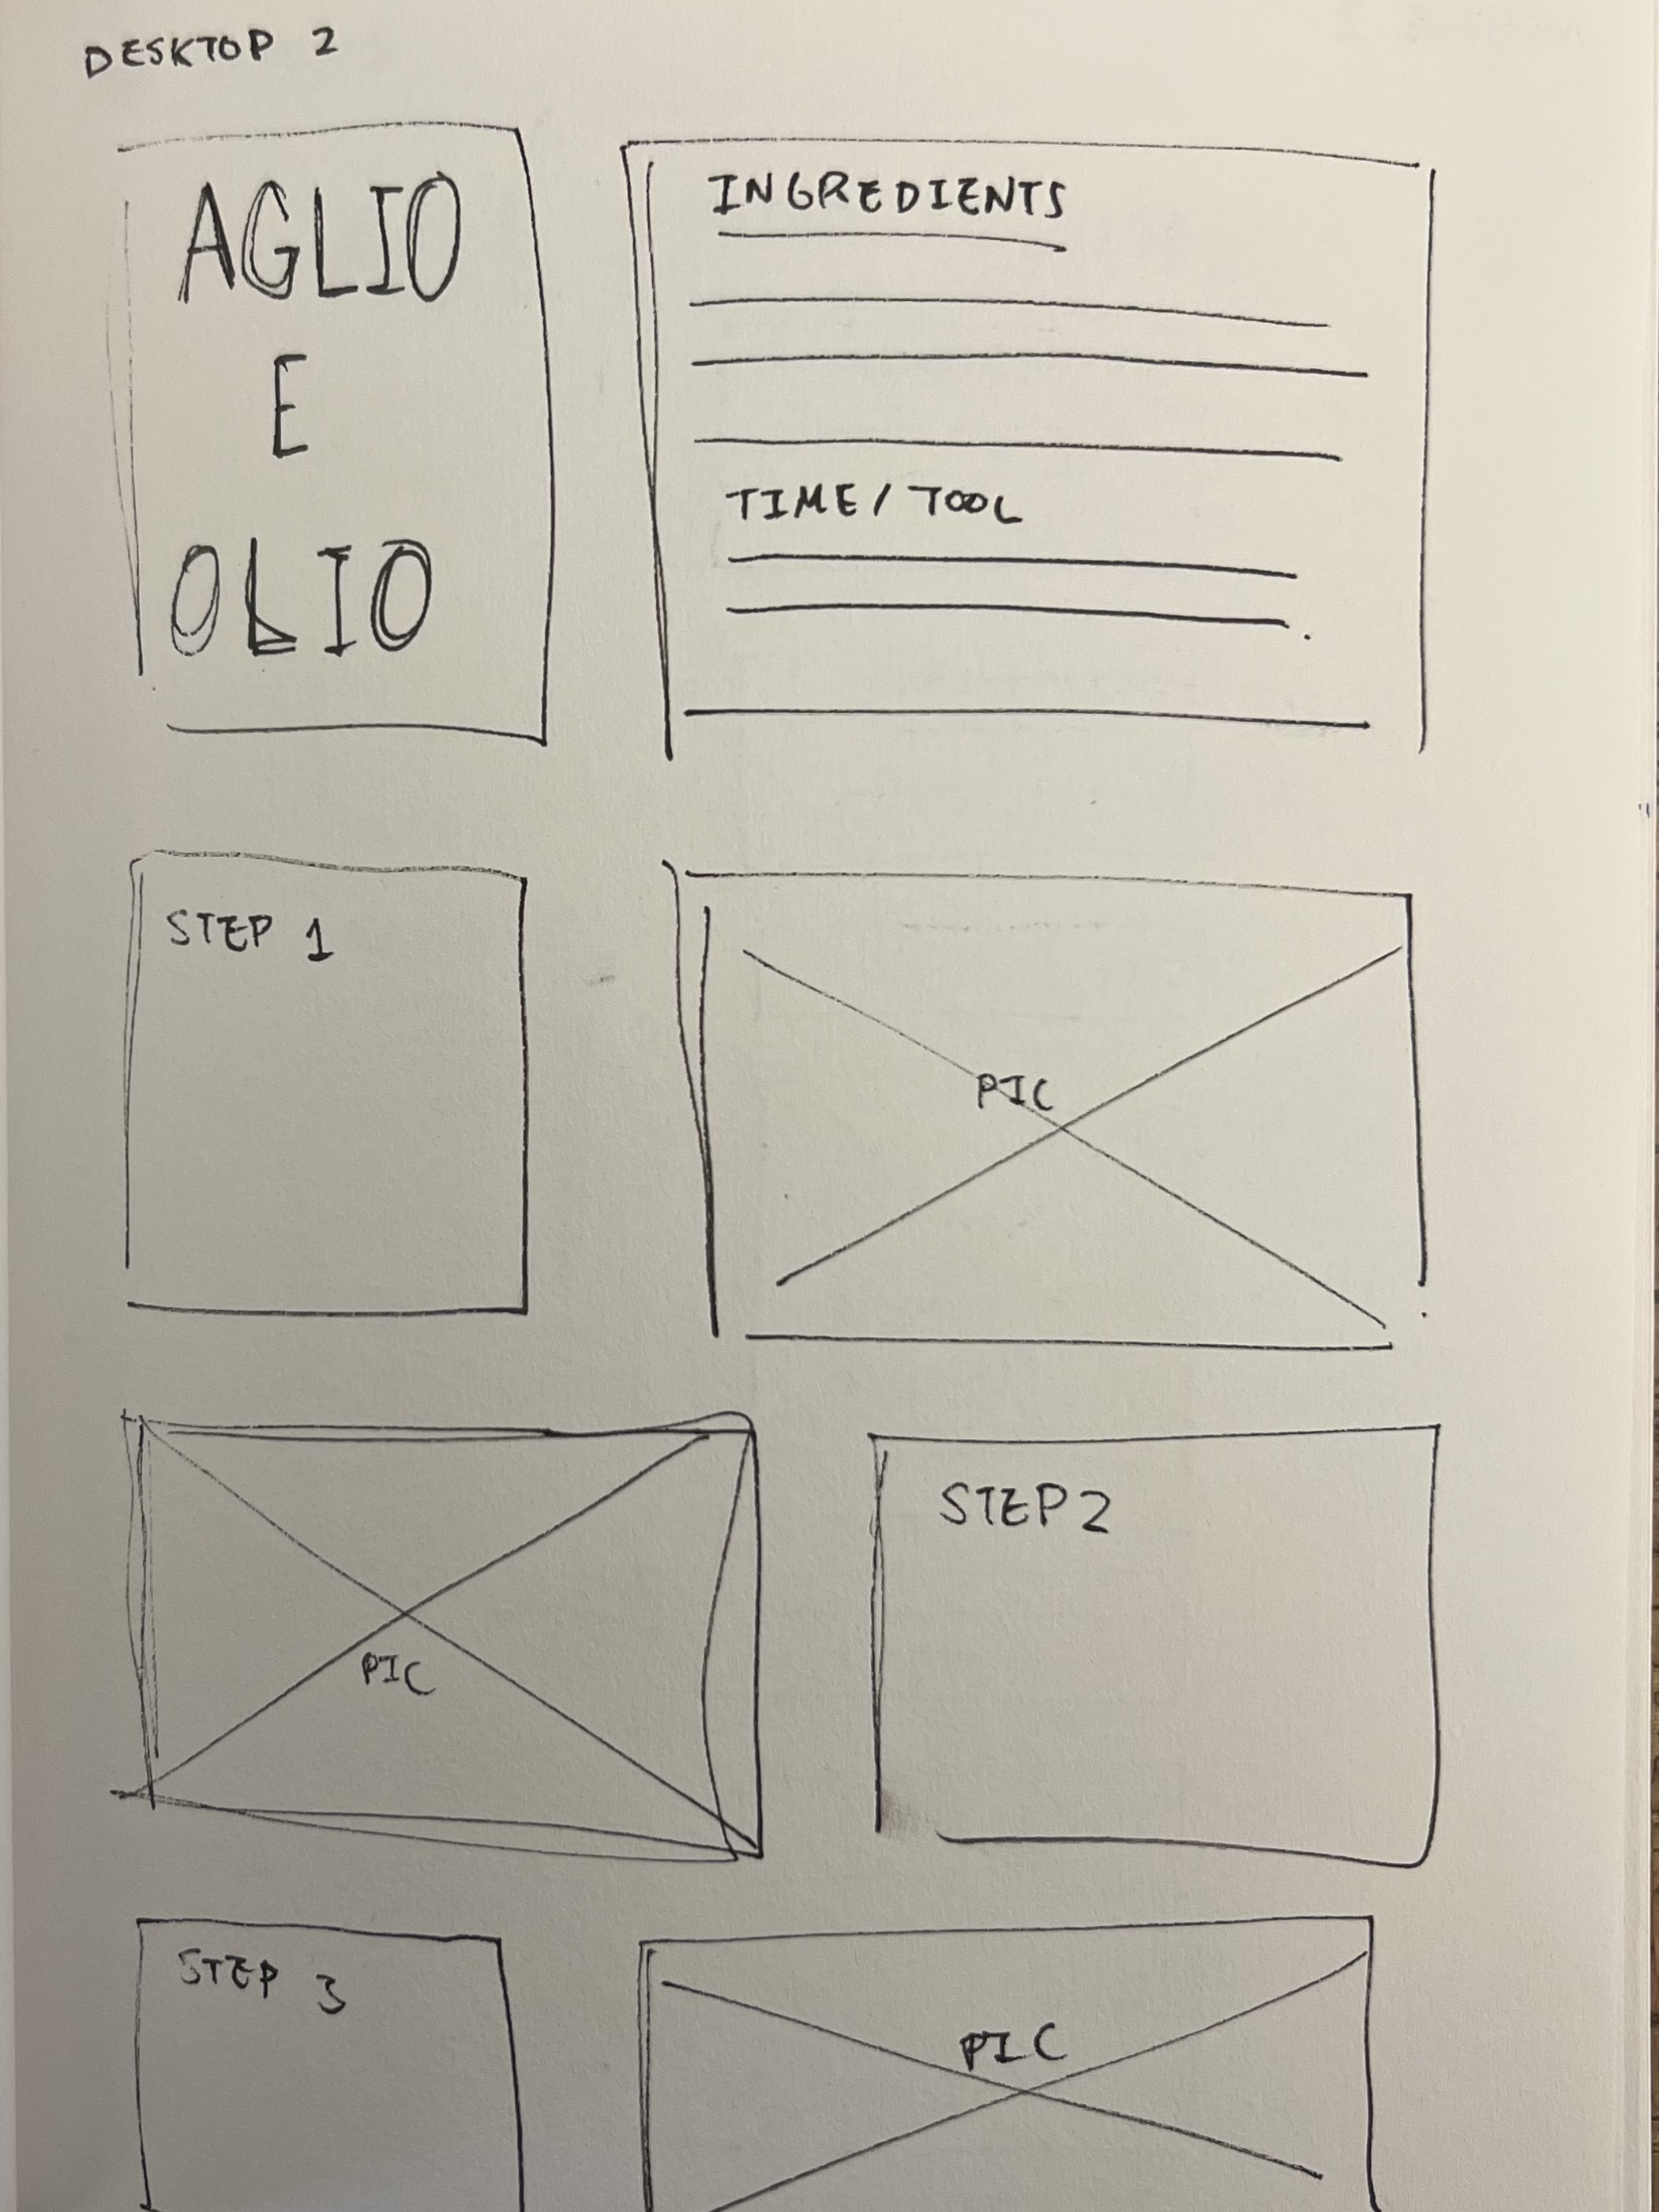 DESKTOP 2
AGLIO
E
OLIO
INGREDIENTS
TIME / TOOL
STEP 1
PIC
PIC
STEP 2
STEP 3
PIC